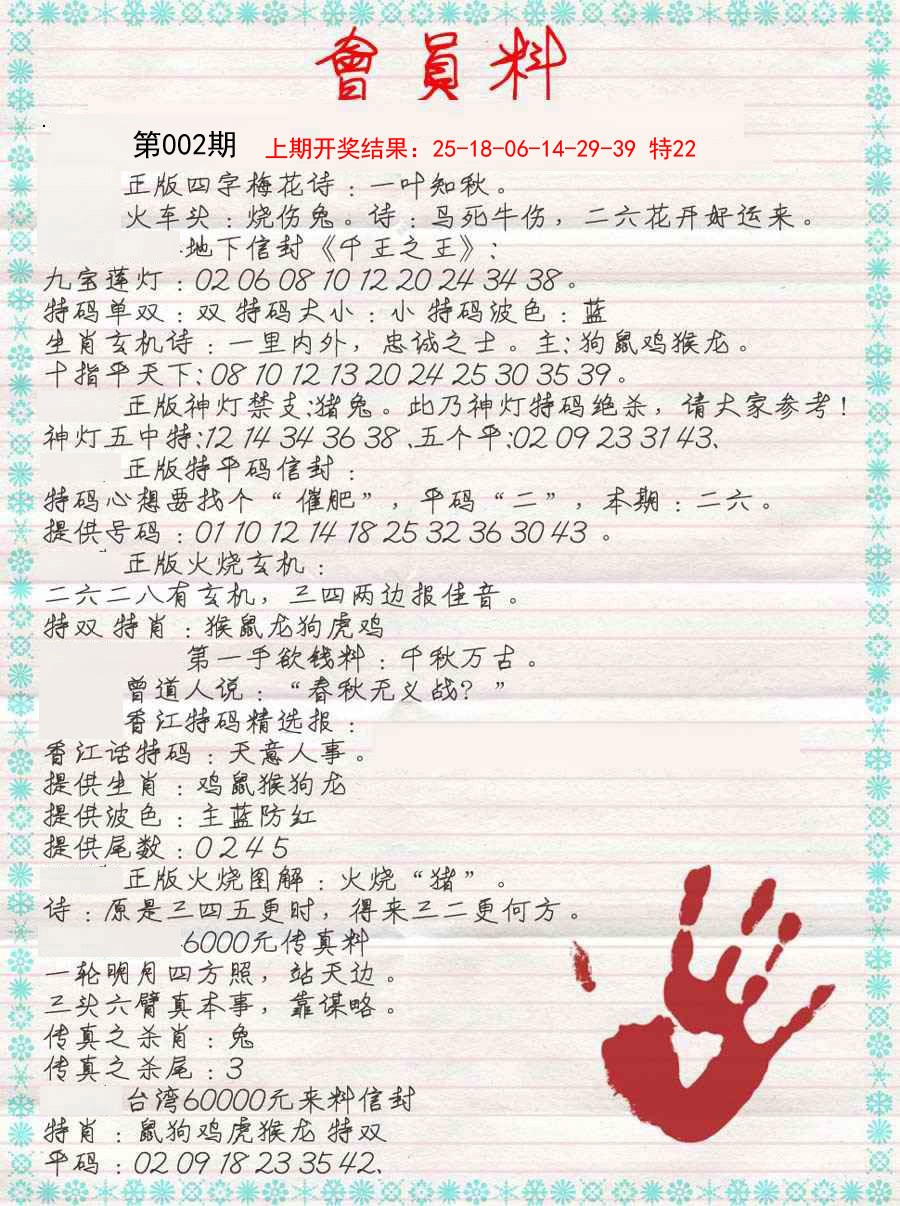 會員料
第002期 上期开奖结果：25-18-06-14-29-39 特22
正版四字梅花诗：一叶知秋。
火车头：烧伤兔。诗：鸟死牛伤，二六花开好运来。
地下信封《千王之王》：
九宝莲灯：02 06 08 10 12 20 24 34 38。
特码单双：双 特码大小：小 特码波色：蓝
生肖玄机诗：一里内外，忠诚之士。主：狗鼠鸡猴龙。
十指平天下：08 10 12 13 20 24 25 30 35 39。
正版神灯禁支：猪兔。此乃神灯特码绝杀，请大家参考！
神灯五中特：12 14 34 36 38、五个平：02 09 23 31 43、
正版特平码信封：
特码心想要找个“催肥”，平码“二”，本期：二六。
提供号码：01 10 12 14 18 25 32 36 30 43 。
正版火烧玄机：
二六二八有玄机，三四两边报佳音。
特双 特肖：猴鼠龙狗虎鸡
第一手欲钱料：千秋万古。
曾道人说：“春秋无义战？”
香江特码精选报：
香江话特码：天意人事。
提供生肖：鸡鼠猴狗龙
提供波色：主蓝防红
提供尾数：0 2 4 5
正版火烧图解：火烧“猪”。
诗：原是三四五更时，得来三二更何方。
6000元传真料
一轮明月四方照，站天边。
三头六臂真本事，靠谋略。
传真之杀肖：兔
传真之杀尾：3
台湾60000元来料信封
特肖：鼠狗鸡虎猴龙 特双
平码：02 09 18 23 35 42、